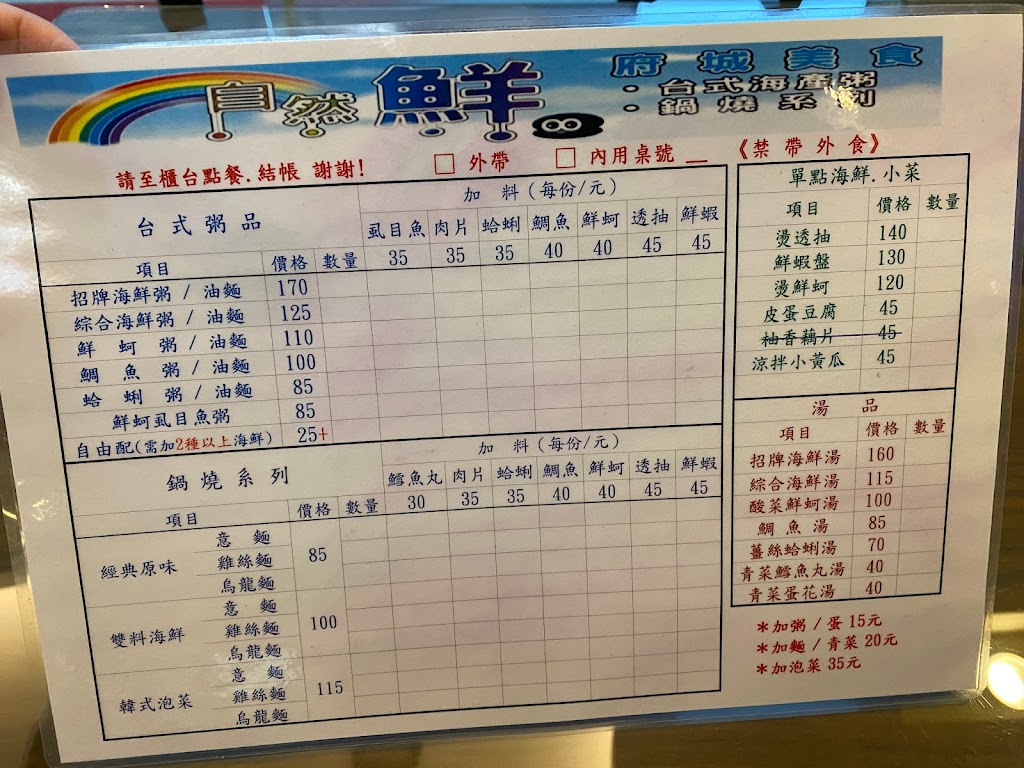 自然鮮
府城美食
·台式海產粥
·鍋燒系列
請至櫃台點餐.結帳 謝謝! □外帶 □內用桌號 __ 《禁帶外食》
台式粥品
加 料 (每份/元)
虱目魚 肉片 蛤蜊 鯛魚 鮮蚵 透抽 鮮蝦
項目 價格 數量 35 35 35 40 40 45 45
招牌海鮮粥 / 油麵 170
綜合海鮮粥 / 油麵 125
鮮 蚵 粥 / 油麵 110
鯛 魚 粥 / 油麵 100
蛤 蜊 粥 / 油麵 85
鮮蚵虱目魚粥 85
自由配(需加2種以上海鮮) 25+
鍋燒系列
加 料 (每份/元)
鱈魚丸 肉片 蛤蜊 鯛魚 鮮蚵 透抽 鮮蝦
項目 價格 數量 30 35 35 40 40 45 45
經典原味 意 麵 85
雞絲麵
烏龍麵
雙料海鮮 意 麵 100
雞絲麵
烏龍麵
韓式泡菜 意 麵 115
雞絲麵
烏龍麵
單點海鮮.小菜
項目 價格 數量
燙透抽 140
鮮蝦盤 130
燙鮮蚵 120
皮蛋豆腐 45
柚香藕片 45
涼拌小黃瓜 45
湯 品
項目 價格 數量
招牌海鮮湯 160
綜合海鮮湯 115
酸菜鮮蚵湯 100
鯛 魚 湯 85
薑絲蛤蜊湯 70
青菜鱈魚丸湯 40
青菜蛋花湯 40
*加粥 / 蛋 15元
*加麵 / 青菜 20元
*加泡菜 35元